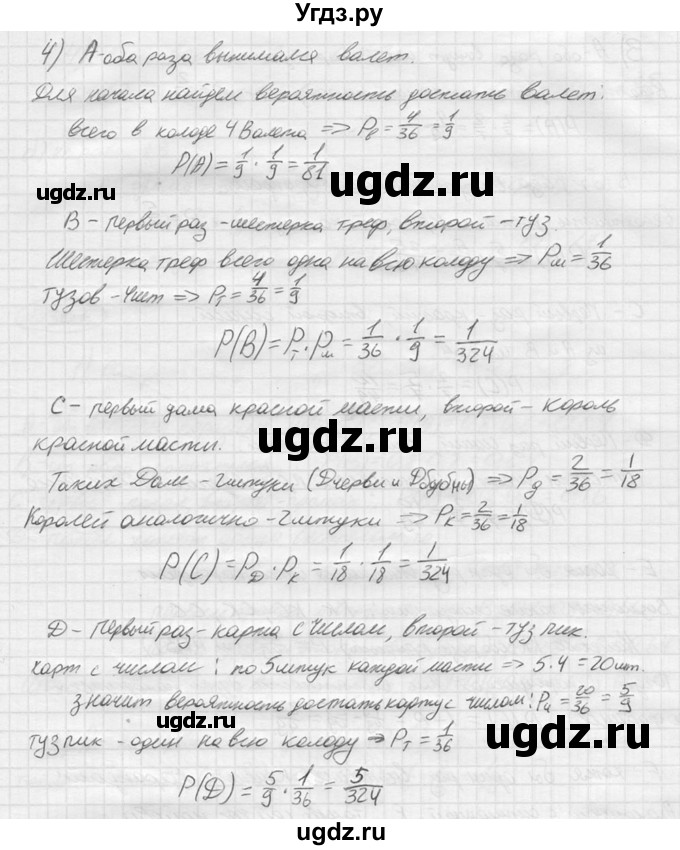 Угдз.ру
4) А-оба раза вынимался валет.
Для начала найдем вероятность достать валет:
всего в колоде 4 валета => Pв = 4/36 = 1/9
P(A) = 1/9 · 1/9 = 1/81
ugdz.ru
ugdz.ru
В - первый раз - шестерка треф, второй - туз.
Шестерка треф всего одна на всю колоду => Pш = 1/36
Тузов - 4шт => Pт = 4/36 = 1/9
ugdz.ru
P(B) = Pт · Pш = 1/36 · 1/9 = 1/324
ugdz.ru
С - первый дама красной масти, второй - король
красной масти.
ugdz.ru
Таких Дам - 2штуки (Dчерви и Dбубны) => Pд = 2/36 = 1/18
Королей аналогично - 2штуки => Pк = 2/36 = 1/18
P(C) = PD · PK = 1/18 · 1/18 = 1/324
ugdz.ru
ugdz.ru
D - первый раз - карта с числом, второй - туз пик.
карт с числом: по 5штук каждой масти => 5·4 = 20шт.
значит вероятность достать карту с числом: Pч = 20/36 = 5/9
ugdz.ru
туз пик - один на всю колоду => Pт = 1/36
ugdz.ru
P(D) = 5/9 · 1/36 = 5/324
ugdz.ru